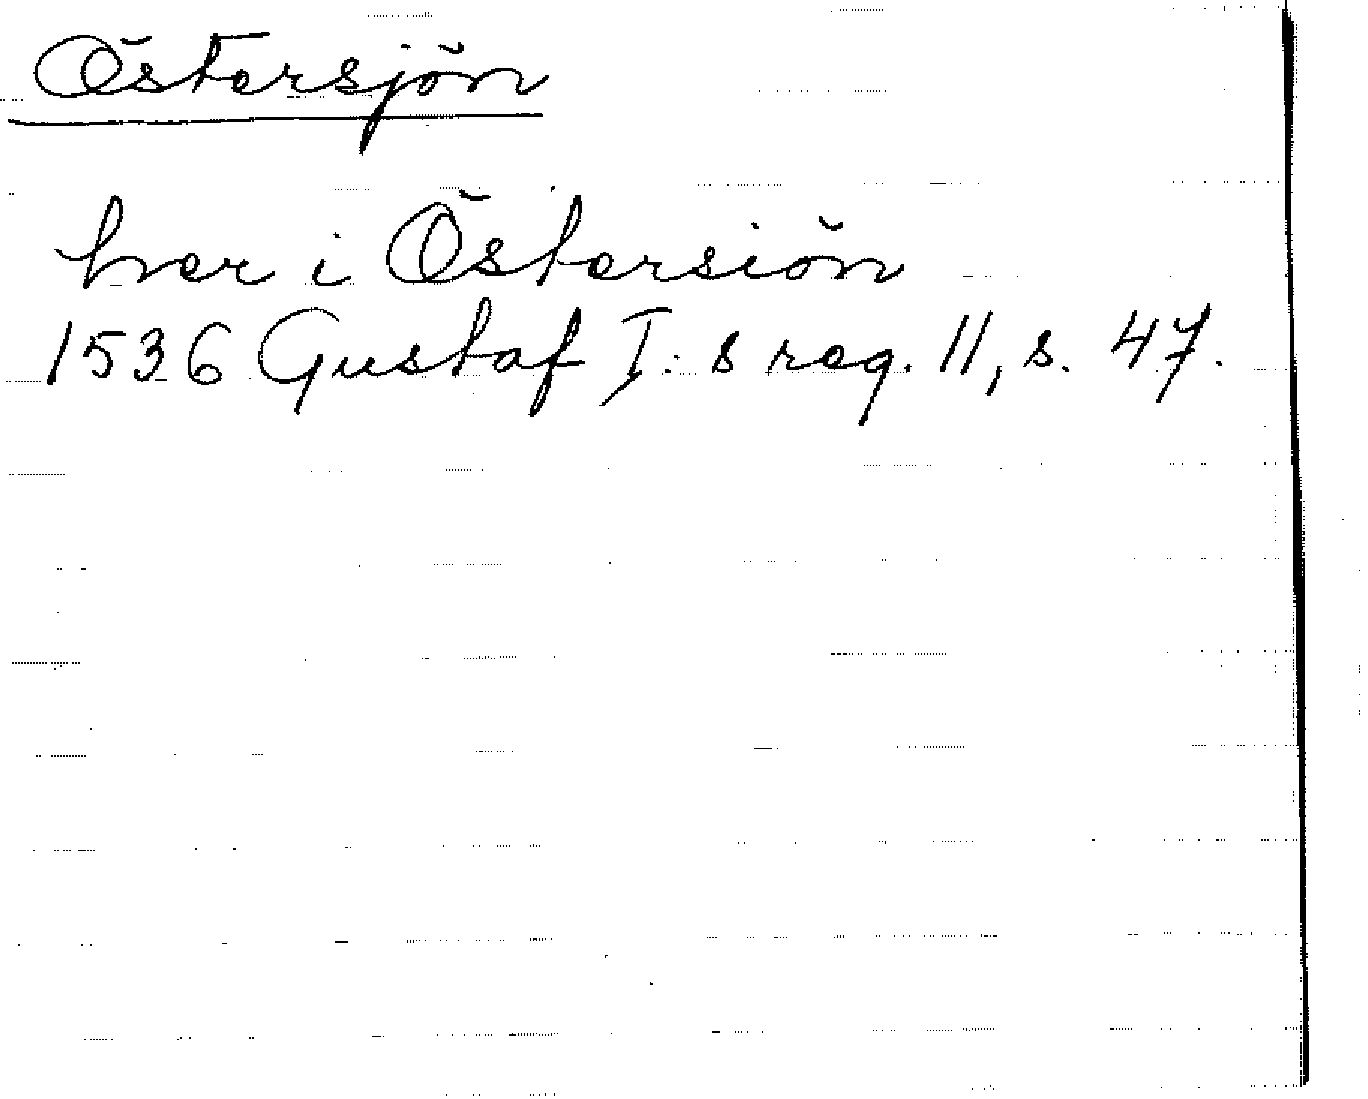 Östersjön
her i Östersiön
1536 Gustaf I:s reg. 11, s. 47.